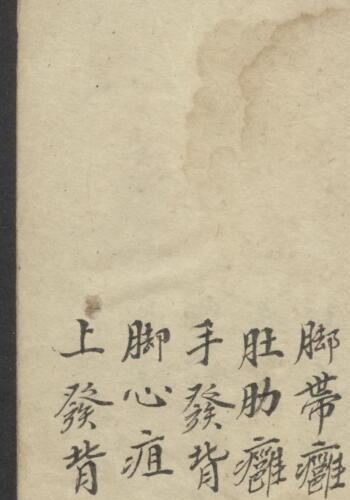 脚帶癰
肚肋癰
手發背
脚心疽
上發背